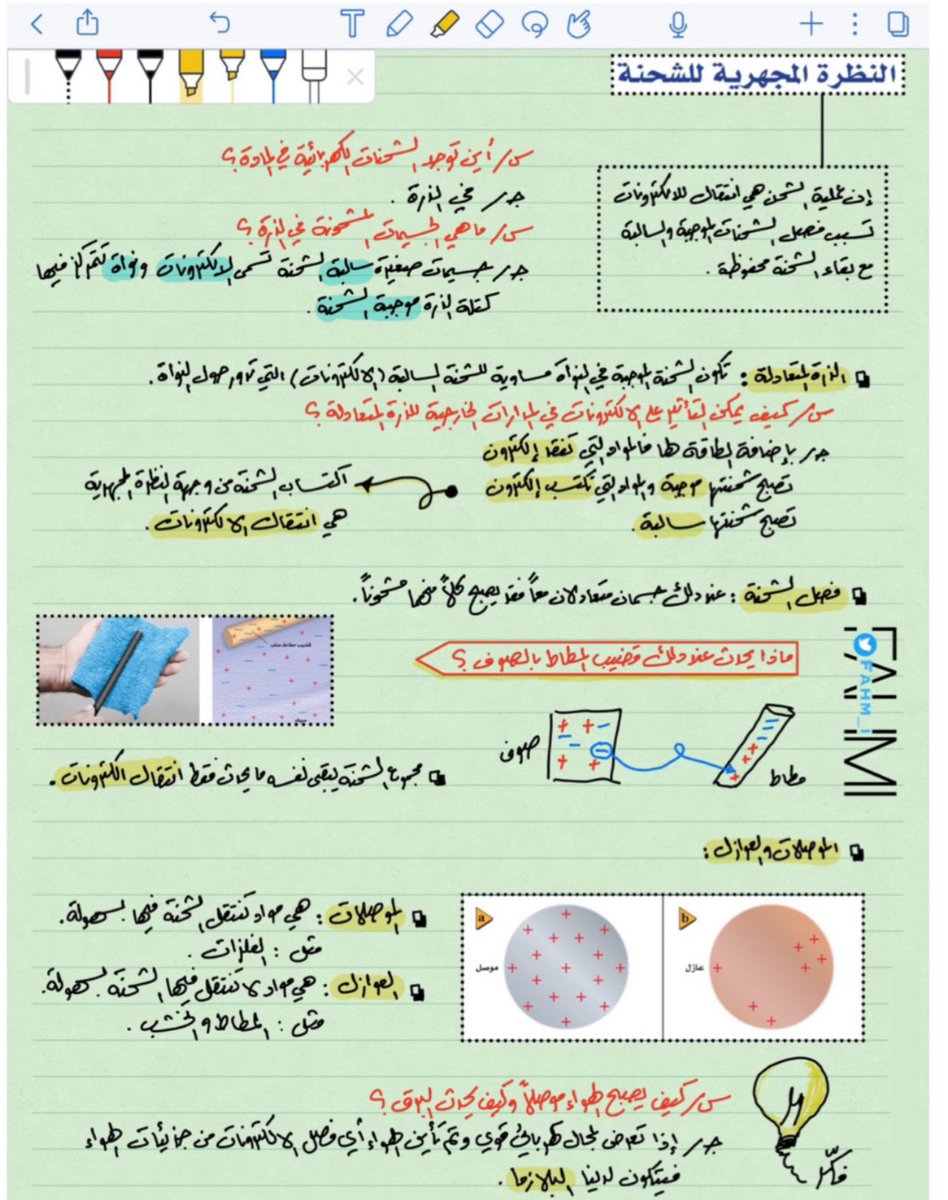 النظرة المجهرية للشحنة
إن عملية الشحن هي انتقال للالكترونات
تسبب فصل الشحنات الموجبة والسالبة
مع بقاء الشحنة محفوظة.
س/ أين توجد الشحنات الكهربائية في المادة؟
جـ/ في الذرة.
س/ ما هي الجسيمات المشحونة في الذرة؟
جـ/ جسيمات صغيرة سالبة الشحنة تسمى الالكترونات ونواة تتمركز فيها
كتلة الذرة موجبة الشحنة.
الذرة المتعادلة: تكون الشحنة الموجبة في النواة مساوية للشحنة السالبة (الالكترونات) التي تدور حول النواة.
س/ كيف يمكن التأثير على الالكترونات في المدارات الخارجية للذرة المتعادلة؟
جـ/ بإضافة الطاقة لها فالمواد التي تفقد إلكترون
تصبح شحنتها موجبة والمواد التي تكتسب إلكترون
تصبح شحنتها سالبة.
اكتساب الشحنة من وجهة النظرة المجهرية
هي انتقال الالكترونات.
فصل الشحنة: عند دلك جسمان متعادلان معاً فقد يصبح كلاً منهما مشحوناً.
ماذا يحدث عند دلك قضيب المطاط بالصوف؟
قضيب مطاط صلب
صوف
صوف
مطاط
FAHM
FAHM_I
مجموع الشحنة يبقى نفسه ما يحدث فقط انتقال الكترونات.
الموصلات والعوازل:
a
موصل
b
عازل
الموصلات: هي مواد تنتقل الشحنة فيها بسهولة.
مثل: الفلزات.
العوازل: هي مواد لا تنتقل فيها الشحنة بسهولة.
مثل: المطاط والخشب.
س/ كيف يصبح الهواء موصلاً وكيف يحدث البرق؟
جـ/ إذا تعرض لمجال كهربائي قوي وتم تأين الهواء أي فصل الالكترونات من جزيئات الهواء
فيتكون لدينا البلازما.
فكّر